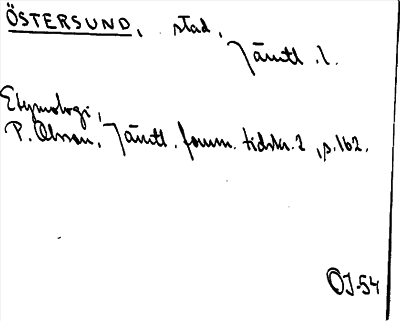 ÖSTERSUND, stad,
Jämtl. l.
Etymologi,
P. Olsson, Jämtl. fornm. tidskr. 2, p. 162.
OJ-54